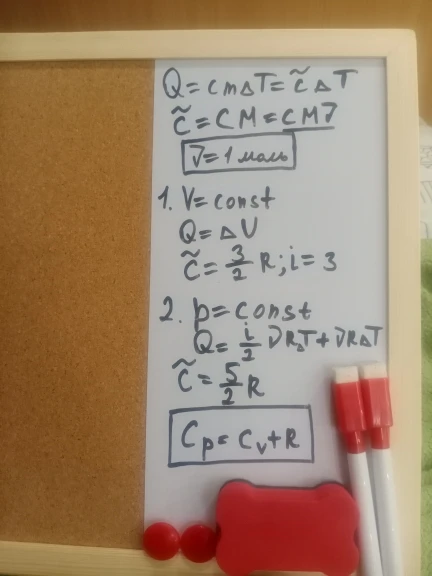 Q = cmΔT = c̃ΔT
c̃ = CM = CMν
ν = 1 моль
1. V = const
Q = ΔU
c̃ = 3/2 R; i = 3
2. p = const
Q = i/2 νRΔT + νRΔT
c̃ = 5/2 R
Cp = Cv + R